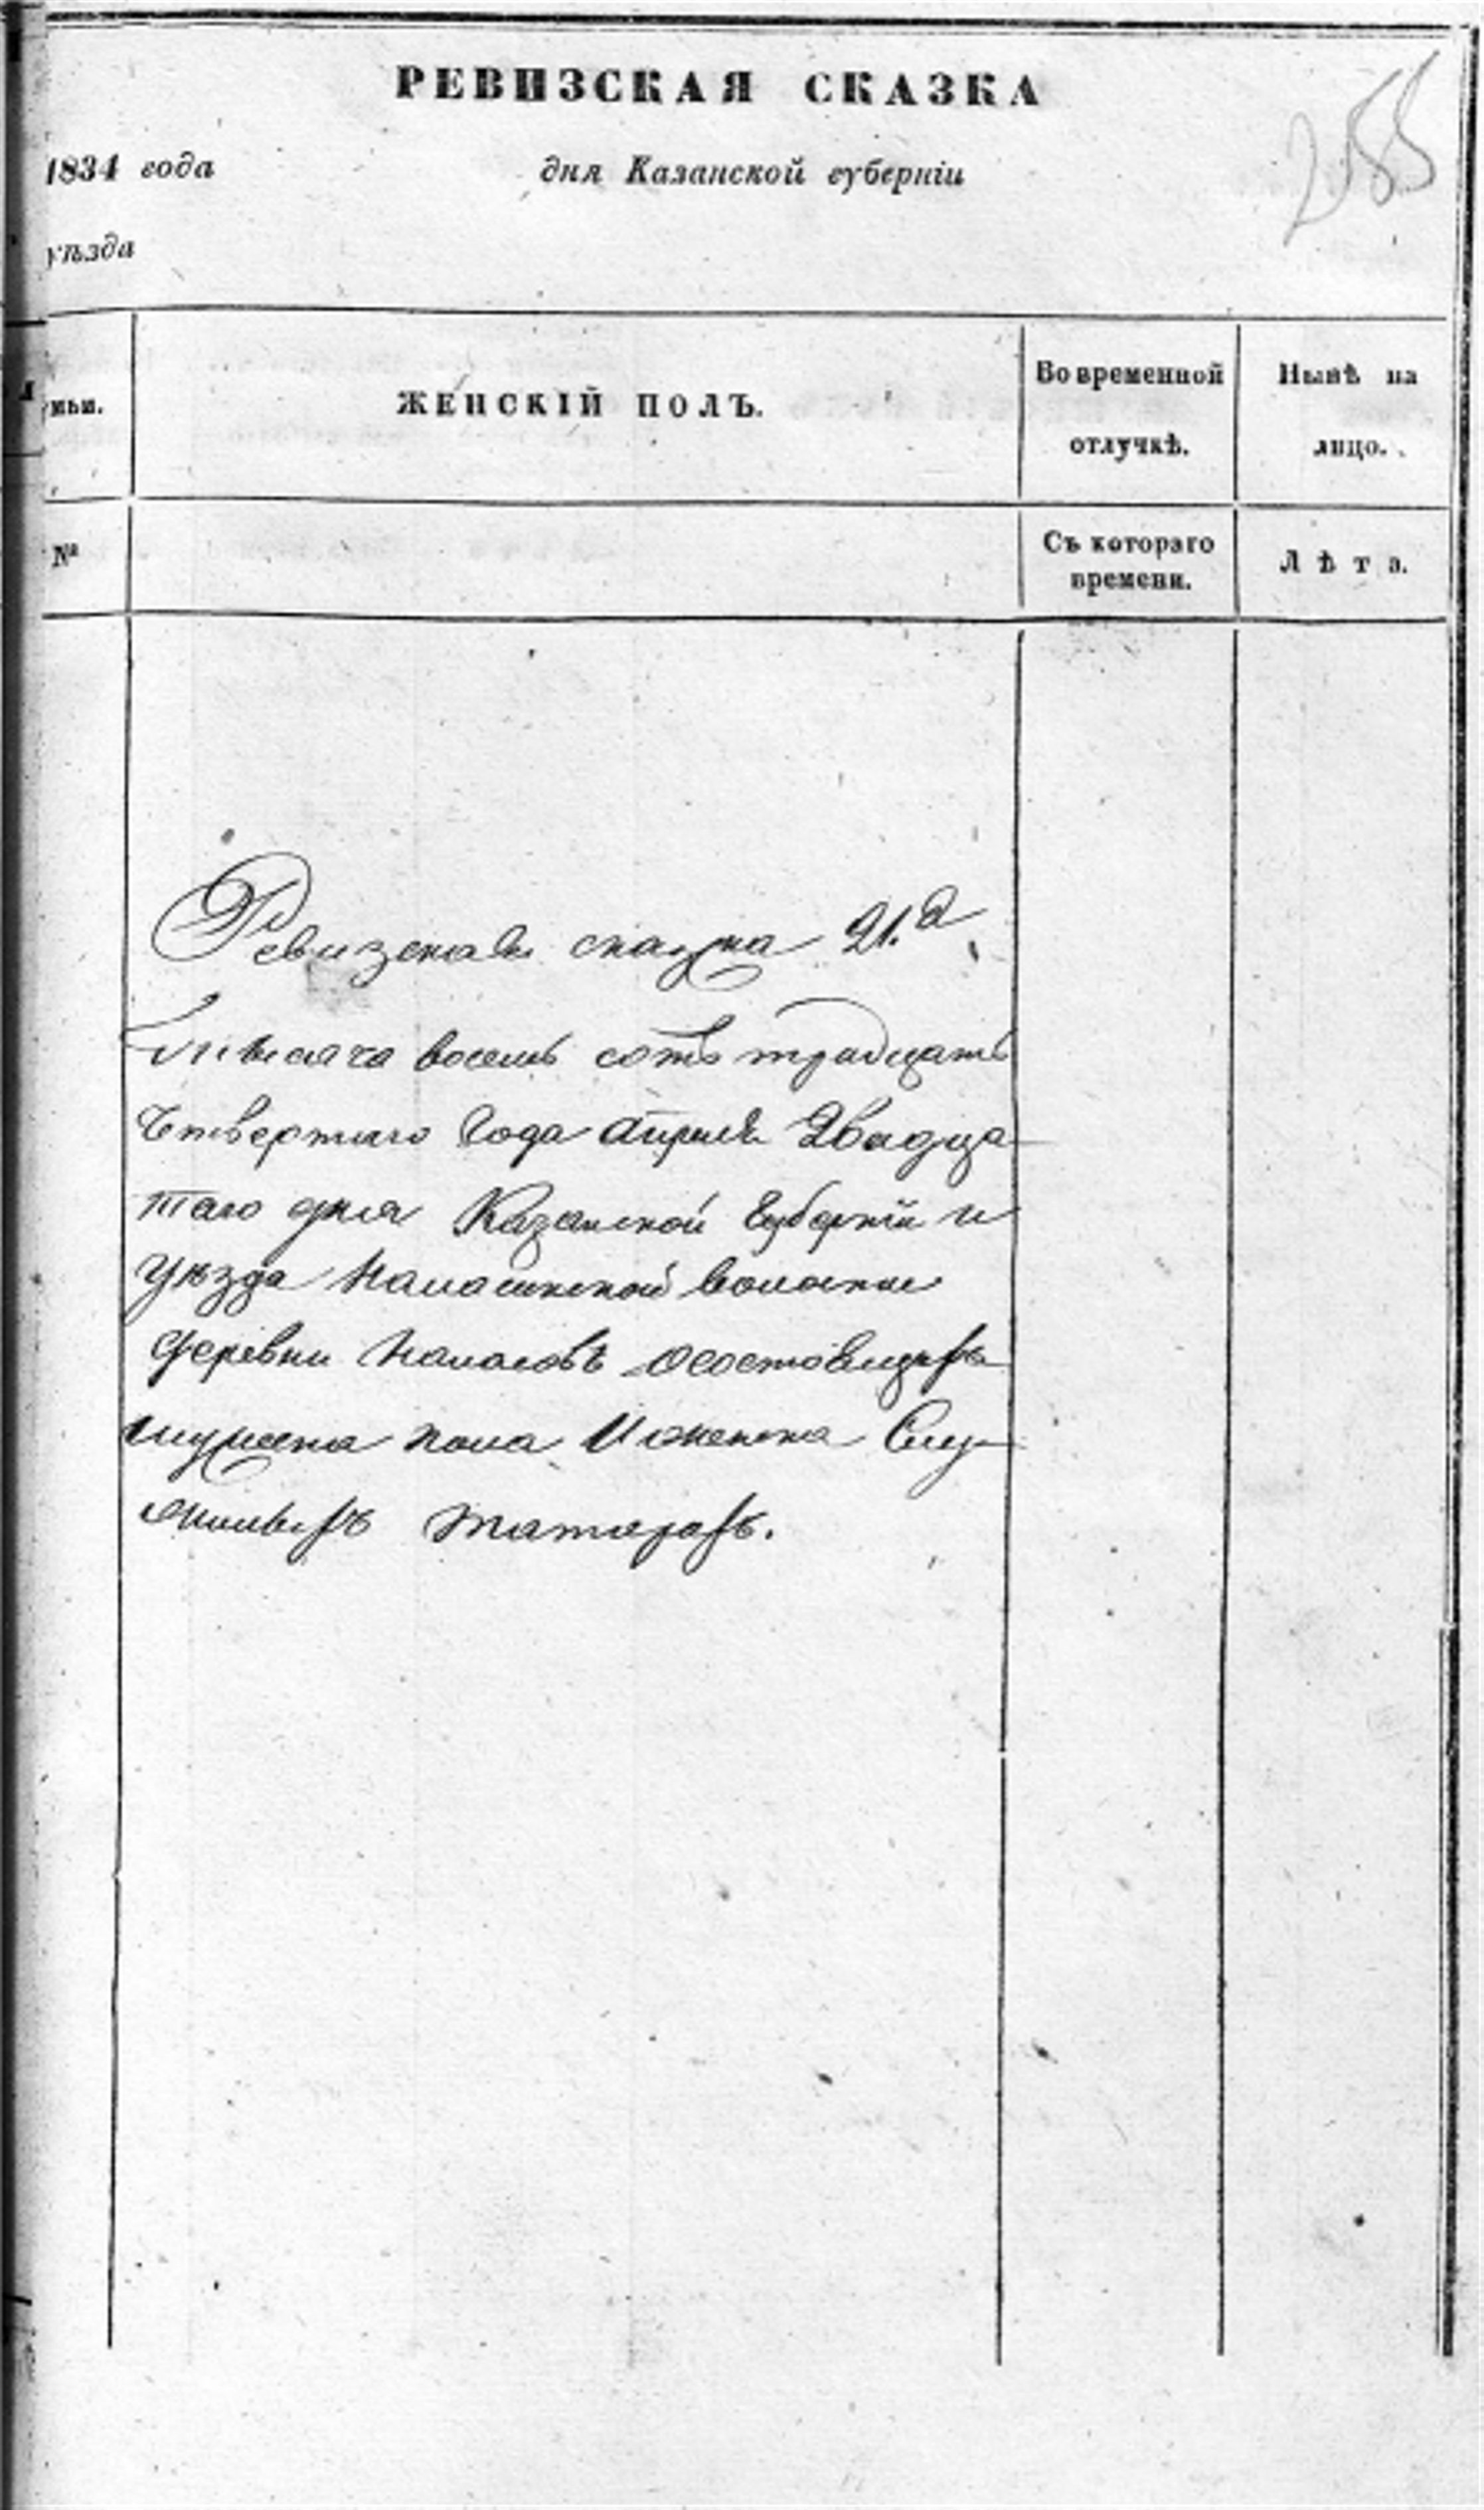 РЕВИЗСКАЯ СКАЗКА
255
1834 года дня Казанской губерніи
уѣзда
мьи. ЖЕНСКІЙ ПОЛЪ. Во временной отлучкѣ. Нынѣ на лицо.
№ Съ котораго времени. Лѣта.
Ревизская сказка 21.я
Тысяча восемь сотъ тридцать
Четвертаго Года апреля Двадца
таго дня Казанской Губерніи и
уѣзда волости
деревни осостоящихъ
мужеска пола Иженска Слу
жилыхъ татарахъ.